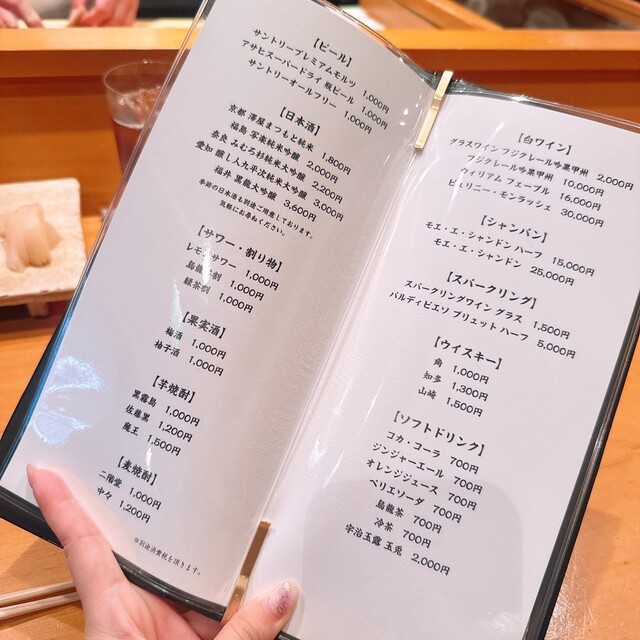 【ビール】
サントリープレミアムモルツ 1,000円
アサヒスーパードライ 瓶ビール 1,000円
サントリーオールフリー 1,000円
【日本酒】
京都 澤屋まつもと純米 1,800円
福島 写楽純米吟醸 2,000円
奈良 みむろ杉純米大吟醸 2,200円
愛知 醸し人九平次純米大吟醸 3,000円
福井 黒龍大吟醸 3,600円
季節の日本酒も別途ご用意しております。
気軽にお尋ねください。
【サワー・割り物】
レモンサワー 1,000円
烏龍茶割 1,000円
緑茶割 1,000円
【果実酒】
梅酒 1,000円
柚子酒 1,000円
【芋焼酎】
黒霧島 1,000円
佐藤黒 1,200円
魔王 1,500円
【麦焼酎】
二階堂 1,000円
中々 1,200円
※別途消費税を頂きます。
【白ワイン】
グラスワイン フジクレール吟果甲州 2,000円
フジクレール吟果甲州 10,000円
ウィリアム フェーブル 16,000円
ピュリニー・モンラッシェ 30,000円
【シャンパン】
モエ・エ・シャンドン ハーフ 15,000円
モエ・エ・シャンドン 25,000円
【スパークリング】
スパークリングワイン グラス 1,500円
バルディビエソ ブリュット ハーフ 5,000円
【ウイスキー】
角 1,000円
知多 1,300円
山崎 1,500円
【ソフトドリンク】
コカ・コーラ 700円
ジンジャーエール 700円
オレンジジュース 700円
ペリエソーダ 700円
烏龍茶 700円
冷茶 700円
宇治玉露 玉兎 2,000円